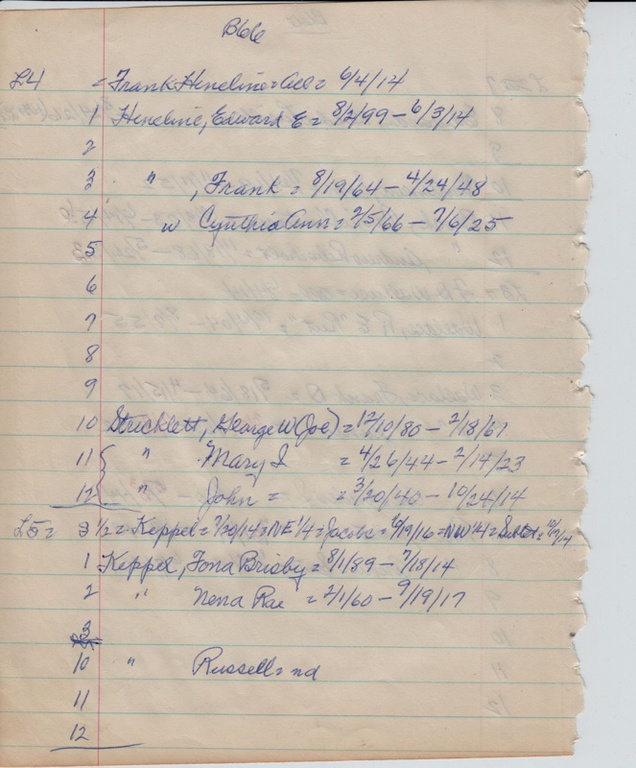 Bl 66
L4 = Frank Heneline = all = 6/4/14
1 Heneline, Edward E = 8/2/99 - 6/3/14
2
3 " , Frank = 8/19/64 - 4/24/48
4 w Cynthia Ann = 2/5/66 - 7/6/25
5
6
7
8
9
10 Stricklett, George W (Joe) = 12/10/80 - 2/18/67
11 { " Mary I = 4/26/44 - 2/14/23
12 " John = = 3/20/40 - 10/24/14
L5 = S 1/2 = Keppel = 7/20/14 = NE 1/4 = Jacobs = 10/19/16 = NW 1/4 =
1 Keppel, Iona Brisby = 8/1/89 - 7/18/14
2 " Nena Rae = 2/1/60 - 9/19/17
3
10 " Russell = nd
11
12